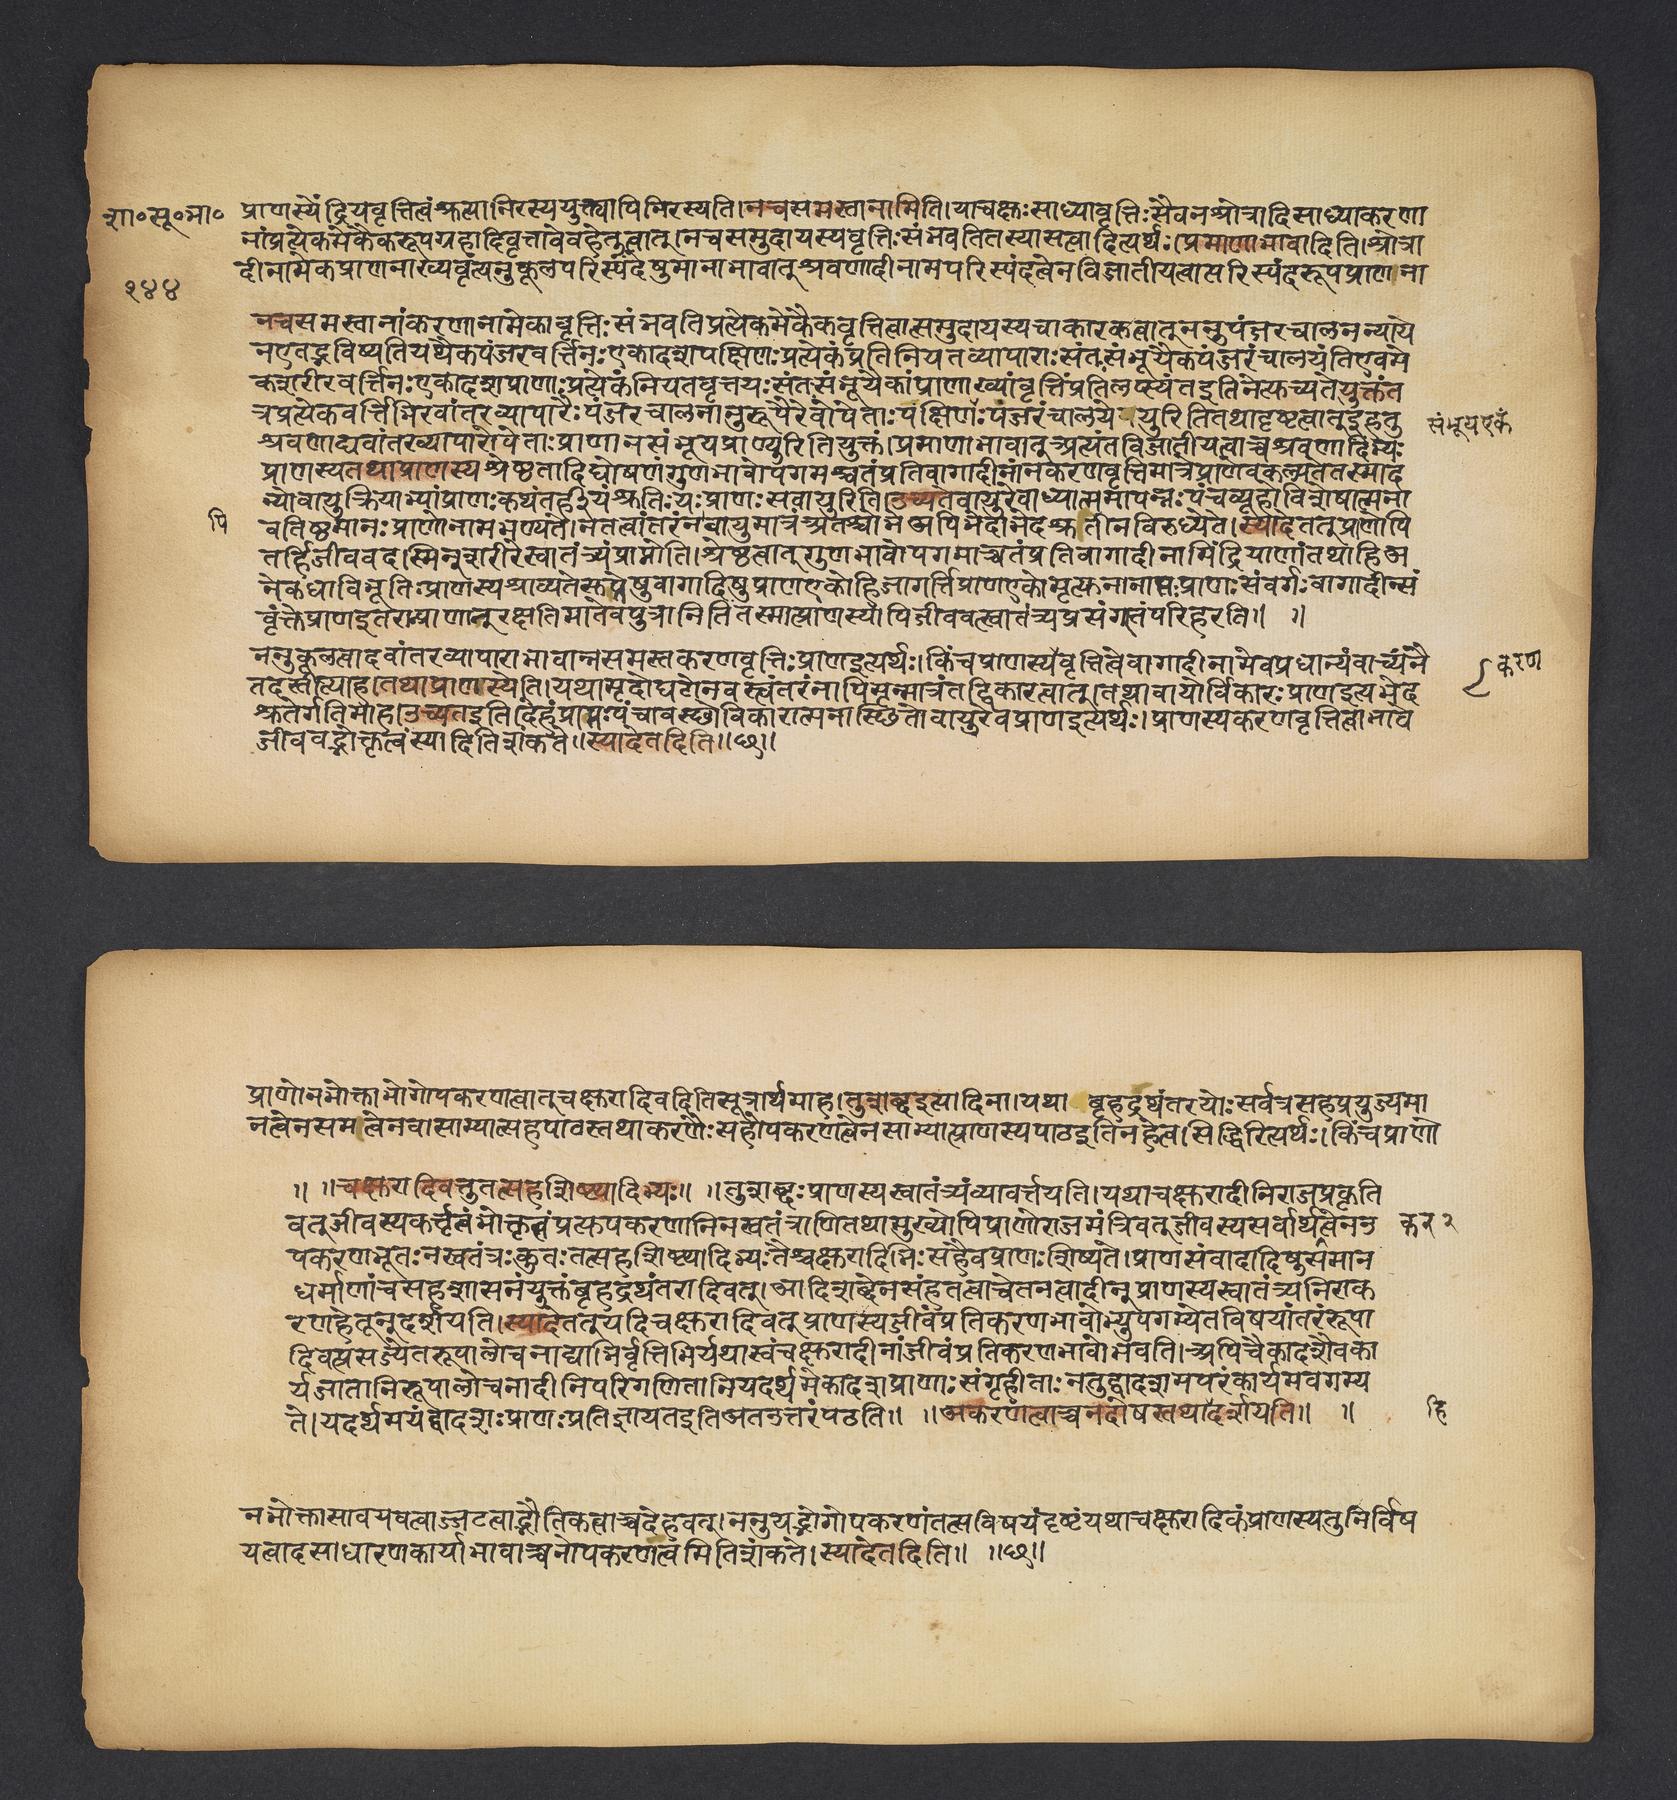 शा॰सू॰भा॰
१४४
प्राणस्येंद्रियवृत्तित्वंश्रुत्यानिरस्ययुक्त्यापिनिरस्यति।नचसमस्तानामिति।याचक्षुःसाध्यावृत्तिःसैवनश्रोत्रादिसाध्याकरणा
नांप्रत्येकमेकैकरूपग्रहादिवृत्तावेवहेतुत्वात्।नचसमुदायस्यवृत्तिःसंभवतितस्यासत्वादित्यर्थः।प्रमाणाभावादिति।श्रोत्रा
दीनामेकप्राणनाख्यवृत्यनुकूलपरिस्पंदेषुमानाभावात्श्रवणादीनामपरिस्पंदत्वेनविजातीयत्वात्सरिस्पंदरूपप्राणना
नचसमस्तानांकरणानामेकावृत्तिःसंभवतिप्रत्येकमेकैकवृत्तित्वात्समुदायस्यचाकारकत्वात्ननुपंजरचालनन्याये
नएतद्भविष्यतियथैकपंजरवर्त्तिनःएकादशपक्षिणःप्रत्येकंप्रतिनियतव्यापाराःसंतःसंभूयैकपंजरंचालयंतिएवमे
कशरीरवर्त्तिनःएकादशप्राणाःप्रत्येकंनियतवृत्तयःसंतःसंभूयैकांप्राणाख्यांवृत्तिंप्रतिलप्स्यंतइतिनेत्युच्यतेयुक्तंत
त्रप्रत्येकवर्त्तिभिरवांतरव्यापारैःपंजरचालनानुरूपैरेवोपेताःपक्षिणःपंजरंचालयेयुरितितथादृष्टत्वात्इहतु
संभूयएकं
श्रवणाद्यवांतरव्यापारोपेताःप्राणानसंभूयप्राण्युरितियुक्तं।प्रमाणाभावात्अत्यंतविजातीयत्वाच्चश्रवणादिभ्यः
प्राणस्यतथाप्राणस्यश्रेष्ठतादिघोषणंगुणभावोपगमश्चतंप्रतिवागादीनांनकरणवृत्तिमात्रेप्राणेवकल्पतेतस्माद
न्योवायुक्रियाभ्यांप्राणःकथंतर्हीयंश्रुतिःयःप्राणःसवायुरिति।उच्यतेवायुरेवाध्यात्ममापन्नःपंचव्यूहोविशेषात्मना
पि
वतिष्ठमानःप्राणोनामभण्यते।नतत्वांतरंनवायुमात्रंअतश्चोभेअपिभेदाभेदश्रुतीनविरुध्येते।स्यादेतत्प्राणोपि
तर्हिजीववद।स्मिन्शरीरेस्वातंत्र्यंप्राप्नोति।श्रेष्ठत्वात्गुणभावोपगमाच्चतंप्रतिवागादीनामिंद्रियाणांतथाहिअ
नेकधाविभूतिःप्राणस्यश्राव्यतेसुप्तेषुवागादिषुप्राणएकोहिजागर्त्तिप्राणएकोमृत्युनानाप्तःप्राणःसंवर्गःवागादीन्सं
वृंक्तेप्राणइतरान्प्राणान्रक्षतिमातेवपुत्रानितितस्मात्प्राणस्यापिजीववत्स्वातंत्र्यप्रसंगस्तंपरिहरति॥ ॥
ननुकूलत्वादवांतरव्यापाराभावान्नसमस्तकरणवृत्तिःप्राणइत्यर्थः।किंचप्राणस्यवृत्तित्वेवागादीनामेवप्राधान्यंवाच्यंनै
करण
तदस्तीत्याह।तथाप्राणस्येति।यथामृदोघटोनवस्त्वंतरंनापिमृन्मात्रंतद्विकारत्वात्।तथावायोर्विकारःप्राणइत्यभेद
श्रुतेर्गतिमाह।उच्यतइतिदेहंप्राप्तःपंचावस्थोविकारात्मनास्थितोवायुरेवप्राणइत्यर्थः।प्राणस्यकरणवृत्तित्वाभावे
जीववद्भोक्तृत्वंस्यादितिशंकते॥स्यादेतदिति॥छ॥
प्राणोनभोक्ताभोगोपकरणत्वात्चक्षुरादिवदितिसूत्रार्थमाह।तुशब्दइत्यादिना।यथा बृहद्रथंतरयोःसर्वत्रसहप्रयुज्यमा
नत्वेनसमत्वेनवासाम्यात्सहपाठस्तथाकरणैःसहोपकरणत्वेनसाम्यात्प्राणस्यपाठइतिनहेत्वसिद्धिरित्यर्थः।किंचप्राणो
॥ ॥चक्षुरादिवत्तुतत्सहशिष्ट्यादिभ्यः॥ ॥तुशब्दःप्राणस्यस्वातंत्र्यंव्यावर्त्तयति।यथाचक्षुरादीनिराजप्रकृति
वत्जीवस्यकर्तृत्वंभोक्तृत्वंप्रत्युपकरणानिनस्वतंत्राणितथामुख्योपिप्राणोराजमंत्रिवत्जीवस्यसर्वार्थत्वेनउ
कर२
पकरणभूतःनस्वतंत्रःकुतःतत्सहशिष्ट्यादिभ्यःतैश्चक्षुरादिभिःसहैवप्राणःशिष्यते।प्राणसंवादादिषुसमान
धर्माणांचसहशासनंयुक्तंबृहद्रथंतरादिवत्।आदिशब्देनसंहतत्वाचेतनत्वादीन्प्राणस्यस्वातंत्र्यनिराक
रणहेतून्दर्शयति।स्यादेतत्यदिचक्षुरादिवत्प्राणस्यजीवंप्रतिकरणभावोभ्युपगम्येतविषयांतरंरूपा
दिवत्प्रसज्येतरूपालोचनाद्याभिर्वृत्तिभिर्यथास्वंचक्षुरादीनांजीवंप्रतिकरणभावोभवति।अपिचैकादशैवका
र्यजातानिरूपालोचनादीनिपरिगणितानियदर्थमेकादशप्राणाःसंगृहीताःनतुद्वादशमपरंकार्यमवगम्य
ते।यदर्थमयंद्वादशःप्राणःप्रतिज्ञायतइतिअतउत्तरंपठति॥ ॥अकरणत्वाच्चनदोषस्तथादर्शयति॥ ॥
हि
नभोक्तासावयवत्वाज्जडत्वाद्भौतिकत्वाच्चदेहवत्।ननुयद्भोगोपकरणंतत्सविषयंदृष्टंयथाचक्षुरादिकंप्राणस्यतुनिर्विष
यत्वादसाधारणकार्याभावाच्चनोपकरणत्वमितिशंकते।स्यादेतदिति॥ ॥छ॥